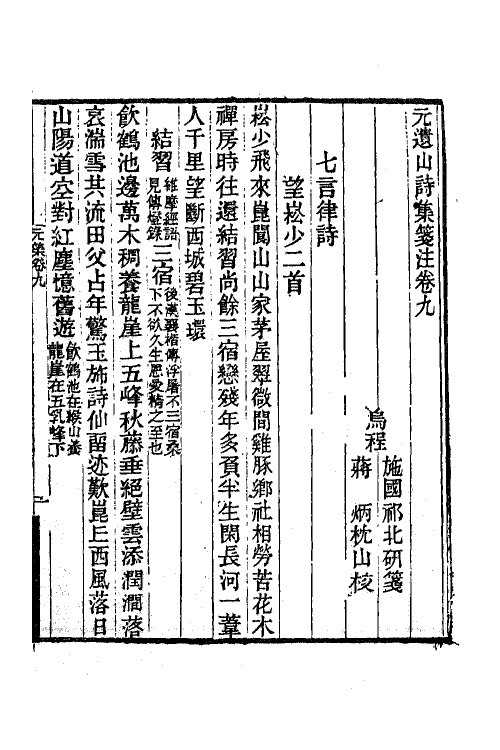 元遺山詩集箋注卷九
烏程
施國祁北研箋
蔣　炳枕山校
七言律詩
望崧少二首
崧少飛來崑閬山山家茅屋翠微間雞豚鄉社相勞苦花木
禪房時往還結習尚餘三宿戀殘年多負半生閑長河一葦
人千里望斷西城碧玉環
結習
維摩經語
見傳燈錄
三宿
後漢襄楷傳浮屠不三宿桑
下不欲久生恩愛精之至也
飲鶴池邊萬木稠養龍崖上五峰秋藤垂絕壁雲添潤澗落
哀湍雪共流田父占年驚玉斾詩仙留迹歎崑丘西風落日
山陽道空對紅塵憶舊遊
飲鶴池在緱山養
龍崖在五乳峰下
元集卷九
一